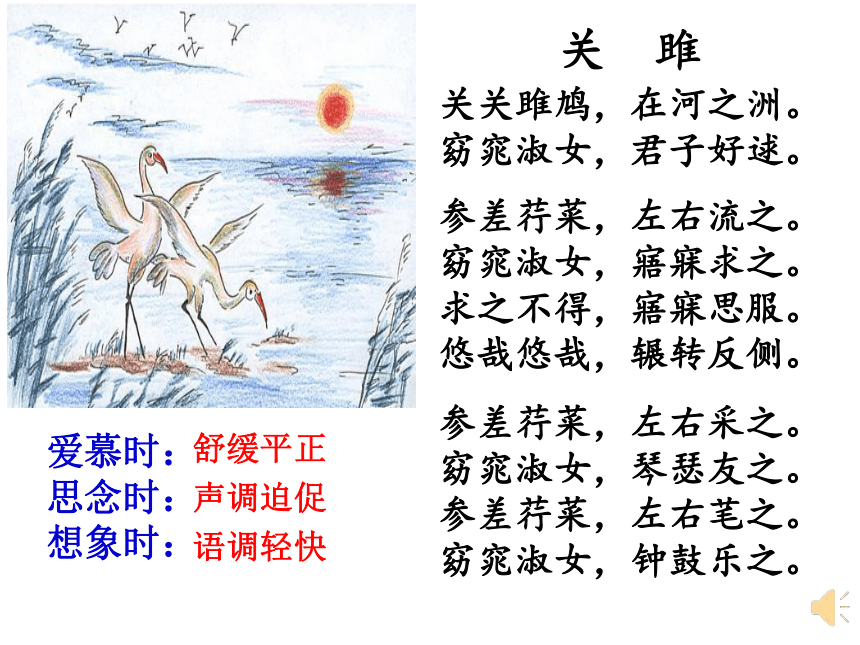 关 雎
关关雎鸠，在河之洲。
窈窕淑女，君子好逑。
参差荇菜，左右流之。
窈窕淑女，寤寐求之。
求之不得，寤寐思服。
悠哉悠哉，辗转反侧。
参差荇菜，左右采之。
窈窕淑女，琴瑟友之。
参差荇菜，左右芼之。
窈窕淑女，钟鼓乐之。
爱慕时：舒缓平正
思念时：声调迫促
想象时：语调轻快